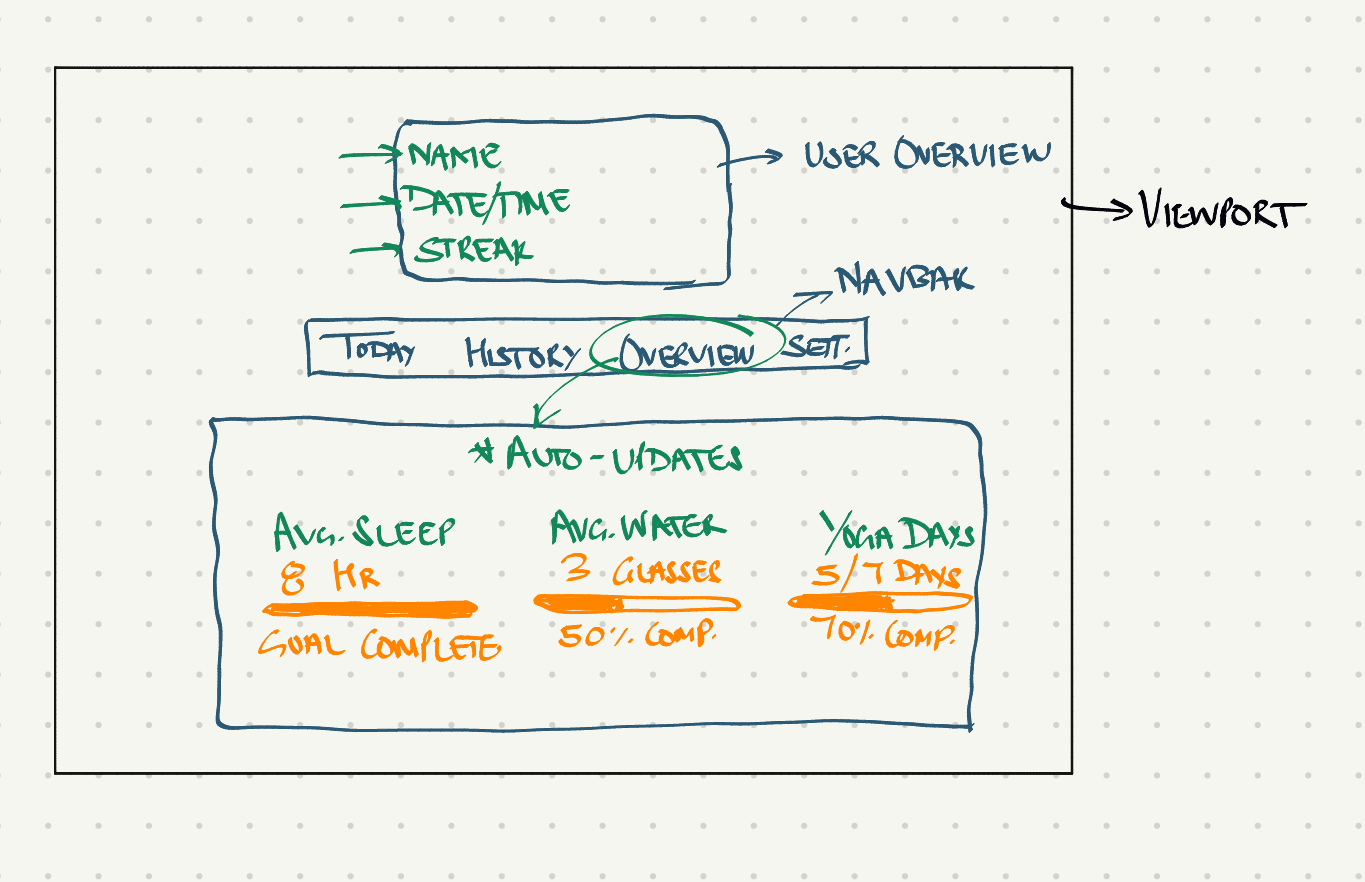 NAME
USER OVERVIEW
DATE/TIME
VIEWPORT
STREAK
NAVBAR
TODAY HISTORY OVERVIEW SETT.
* AUTO-UPDATES
AVG. SLEEP
8 HR
GOAL COMPLETE
AVG. WATER
3 GLASSES
50% COMP.
YOGA DAYS
5/7 DAYS
70% COMP.